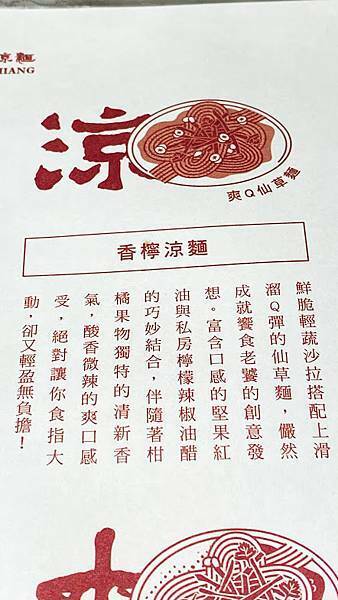 涼麵
HIANG
涼
爽Q仙草麵
香檸涼麵
鮮脆輕蔬沙拉搭配上滑
溜Q彈的仙草麵，儼然
成就饗食老饕的創意發
想。富含口感的堅果紅
油與私房檸檬辣椒油醋
的巧妙結合，伴隨著柑
橘果物獨特的清新香
氣，酸香微辣的爽口感
受，絕對讓你食指大
動，卻又輕盈無負擔！